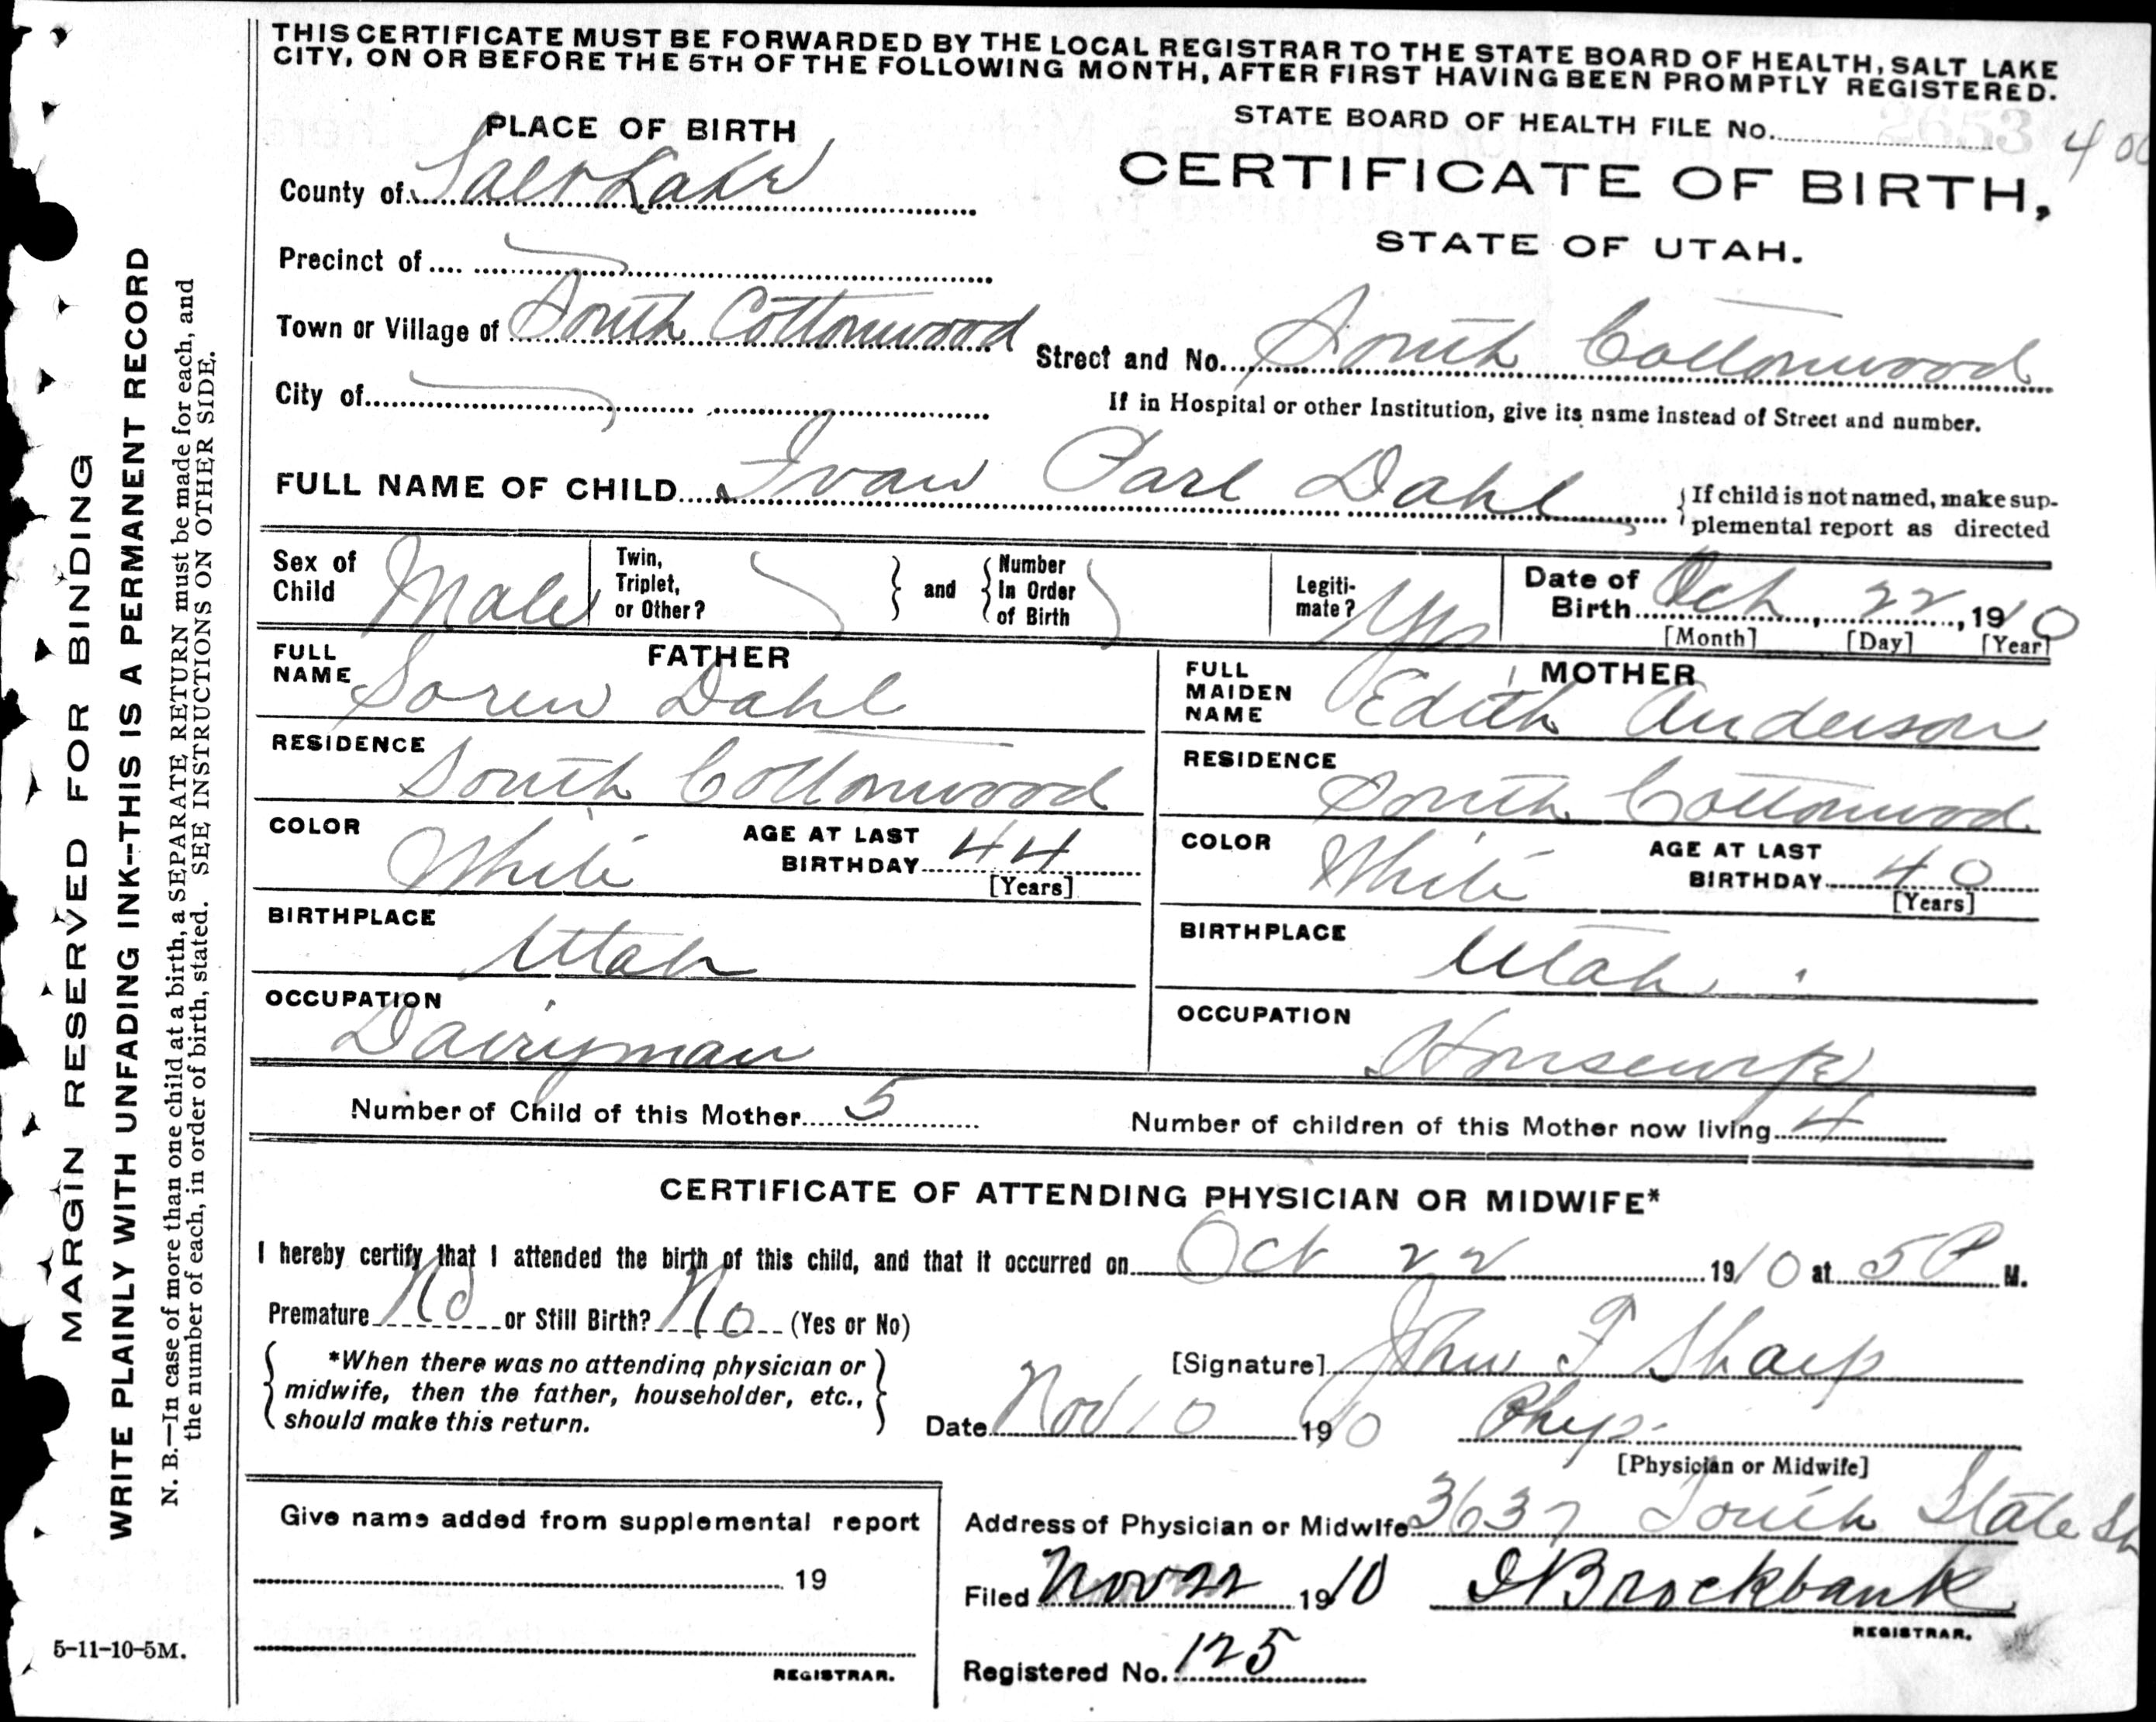 THIS CERTIFICATE MUST BE FORWARDED BY THE LOCAL REGISTRAR TO THE STATE BOARD OF HEALTH, SALT LAKE
CITY, ON OR BEFORE THE 5TH OF THE FOLLOWING MONTH, AFTER FIRST HAVING BEEN PROMPTLY REGISTERED.
STATE BOARD OF HEALTH FILE No. 2653
PLACE OF BIRTH
CERTIFICATE OF BIRTH,
STATE OF UTAH.
County of Salt Lake
Precinct of
Town or Village of South Cottonwood
Street and No. South Cottonwood
City of
If in Hospital or other Institution, give its name instead of Street and number.
FULL NAME OF CHILD Ivan Parl Dahl
If child is not named, make sup-
plemental report as directed
Sex of Child Male
Twin, Triplet, or Other? and Number In Order of Birth
Legiti-mate? Yes
Date of Birth Oct 22, 1910
[Month] [Day] [Year]
FATHER
FULL NAME Soren Dahl
RESIDENCE South Cottonwood
COLOR White AGE AT LAST BIRTHDAY 44
[Years]
BIRTHPLACE Utah
OCCUPATION Dairyman
MOTHER
FULL MAIDEN NAME Edith Anderson
RESIDENCE South Cottonwood
COLOR White AGE AT LAST BIRTHDAY 40
[Years]
BIRTHPLACE Utah
OCCUPATION Housewife
Number of Child of this Mother 5 Number of children of this Mother now living 4
CERTIFICATE OF ATTENDING PHYSICIAN OR MIDWIFE*
I hereby certify that I attended the birth of this child, and that it occurred on Oct 22 1910 at 5 P M.
Premature No or Still Birth? No (Yes or No)
*When there was no attending physician or
midwife, then the father, householder, etc.,
should make this return.
[Signature] John F Sharp
Date Nov 10 1910 Phys.
[Physician or Midwife]
Give name added from supplemental report
19
REGISTRAR.
Address of Physician or Midwife 3637 South State St
Filed Nov 22 1910 Brockbank
REGISTRAR.
Registered No. 125
5-11-10-5M.
MARGIN RESERVED FOR BINDING
WRITE PLAINLY WITH UNFADING INK--THIS IS A PERMANENT RECORD
N. B.—In case of more than one child at a birth, a SEPARATE RETURN must be made for each, and
the number of each, in order of birth, stated. SEE INSTRUCTIONS ON OTHER SIDE.